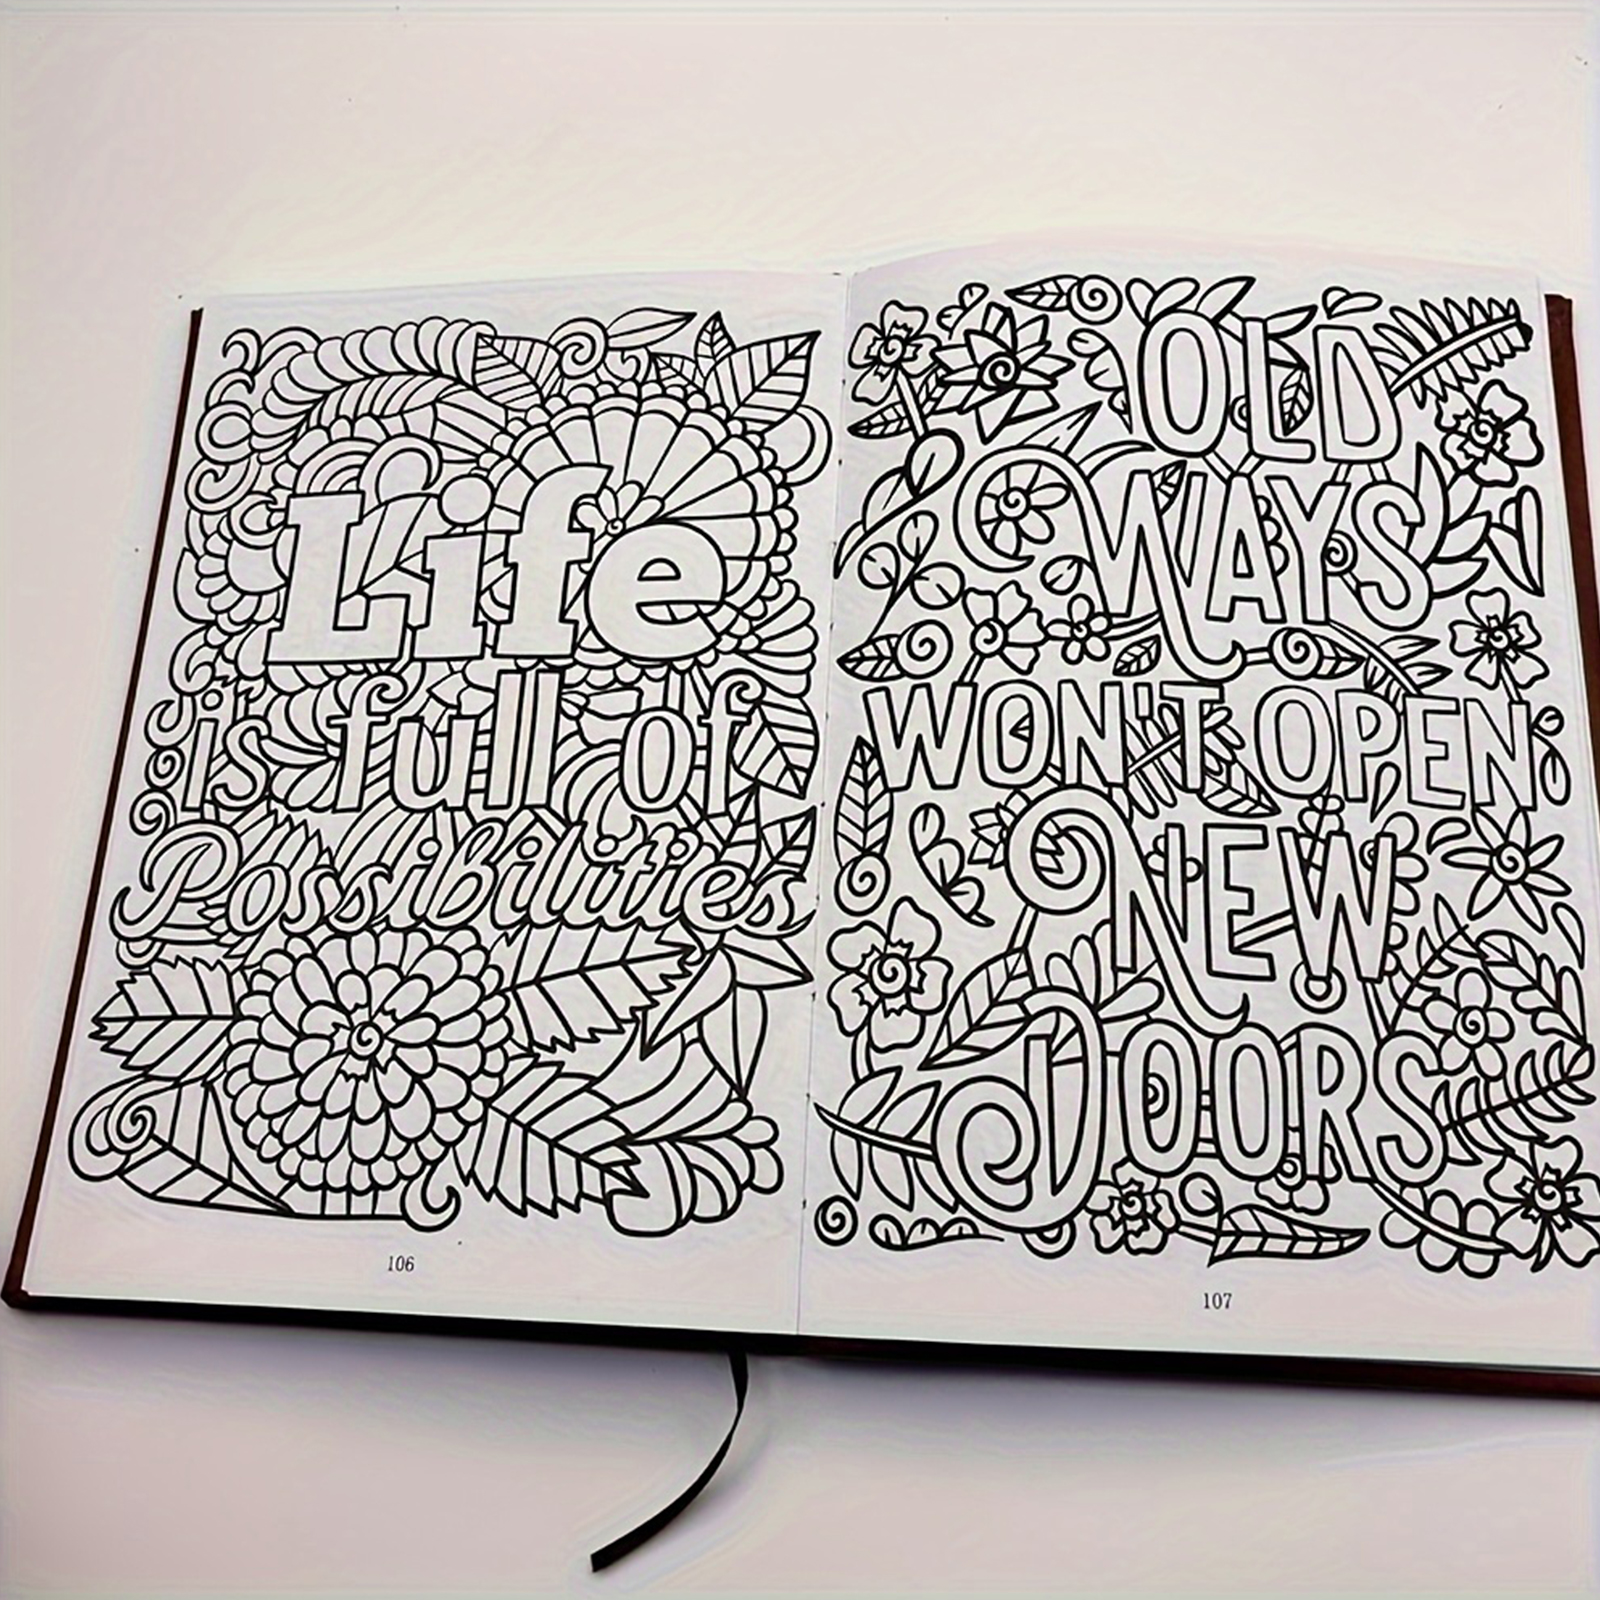 Life
is full of
Possibilities
106
OLD
WAYS
WON'T OPEN
NEW
DOORS
107